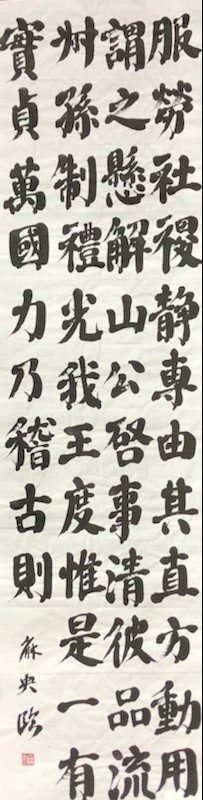 服勞社稷静專由其直方動用
謂之懸解山公啓事清彼品流
叔孫制禮光我王度惟是一有
實貞萬國力乃稽古則
麻央臨